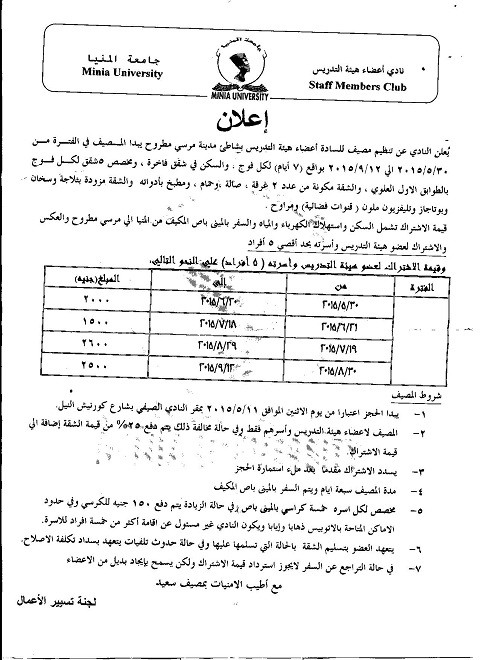 جامعة المنيا
Minia University
جامعة المنيا
MINIA UNIVERSITY
نادي أعضاء هيئة التدريس
Staff Members Club
إعلان
يُعلن النادي عن تنظيم مصيف للسادة أعضاء هيئة التدريس بشاطئ مدينة مرسي مطروح يبدا المصيف في الفترة من
٢٠١٥/٥/٣٠ الي ٢٠١٥/٩/١٢ بواقع (٧ أيام) لكل فوج . والسكن في شقق فاخرة ، ومخصص ٥شقق لكل فوج
بالطوابق الاول العلوي ، والشقة مكونة من عدد ٢ غرفة ، صالة وحمام ، ومطبخ بأدواته والشقة مزودة بثلاجة وسخان
وبوتاجاز وتليفزيون ملون ( قنوات فضائية) ومراوح .
قيمة الاشتراك تشمل السكن واستهلاك الكهرباء والمياه والسفر بالمينى باص المكيف من المنيا الي مرسي مطروح والعكس
والاشتراك لعضو هيئة التدريس وأسرته بحد أقصي ٥ أفراد
وقيمة الاشتراك لعضو هيئة التدريس وأسرته ( ٥ أفراد) علي النحو التالي.
الفترة من إلى المبلغ(جنيه)
٢٠١٥/٥/٣٠ ٢٠١٥/٦/٢٠ ٢٠٠٠
٢٠١٥/٦/٢١ ٢٠١٥/٧/١٨ ١٥٠٠
٢٠١٥/٧/١٩ ٢٠١٥/٨/٢٩ ٢٦٠٠
٢٠١٥/٨/٣٠ ٢٠١٥/٩/١٢ ٢٥٠٠
شروط المصيف
١- يبدا الحجز اعتبارا من يوم الاثنين الموافق ٢٠١٥/٥/١١ بمقر النادي الصيفي بشارع كورنيش النيل.
٢- المصيف لاعضاء هيئة التدريس وأسرهم فقط وفي حالة مخالفة ذلك يتم دفع ٢٥% من قيمة الشقة إضافة الي
قيمة الاشتراك.
٣- يسدد الاشتراك مقدما بعد ملء استمارة الحجز
٤- مدة المصيف سبعة ايام ويتم السفر بالمينى باص المكيف
٥- مخصص لكل اسره خمسة كراسي بالمينى باص وفي حالة الزيادة يتم دفع ١٥٠ جنيه للكرسي وفي حدود
الاماكن المتاحة بالاتوبيس ذهابا وإيابا ويكون النادي غير مسئول عن اقامة أكثر من خمسة افراد للاسرة.
٦- يتعهد العضو بتسليم الشقة بالحالة التي تسلمها عليها وفي حالة حدوث تلفيات يتعهد بسداد تكلفة الاصلاح.
٧- في حالة التراجع عن السفر لايجوز استرداد قيمة الاشتراك ولكن يسمح بإيجاد بديل من الاعضاء
مع أطيب الامنيات بمصيف سعيد
لجنة تسيير الأعمال